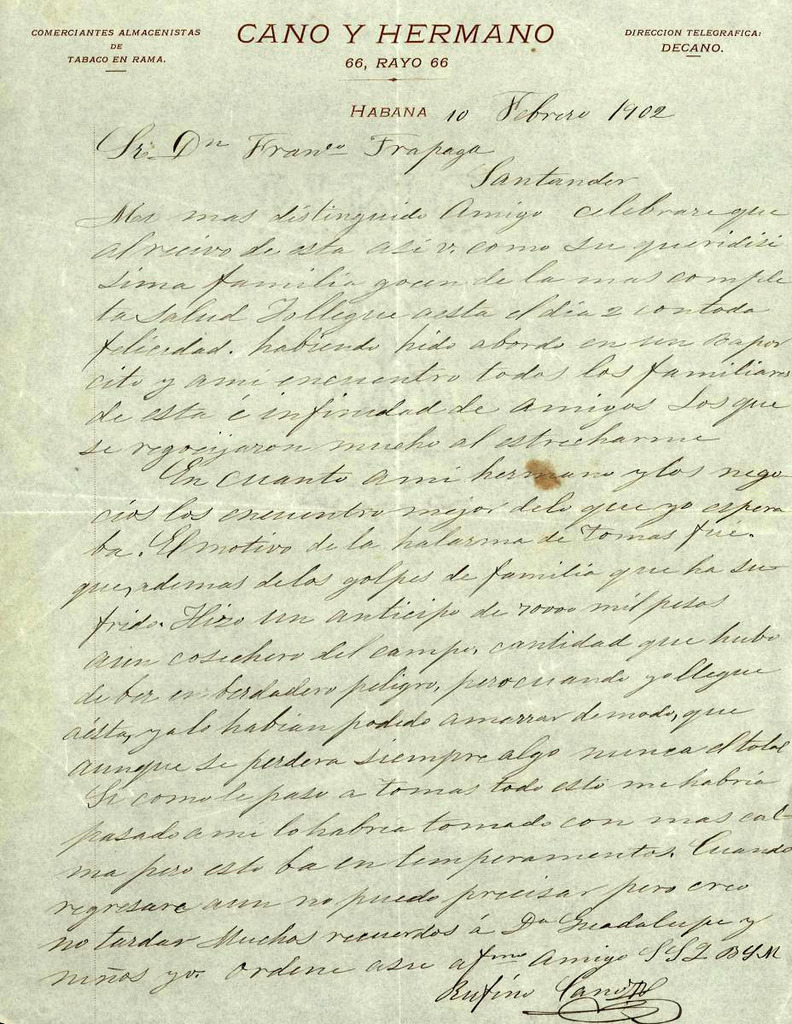 COMERCIANTES ALMACENISTAS
DE
TABACO EN RAMA.
CANO Y HERMANO
66, RAYO 66
DIRECCION TELEGRAFICA:
DECANO.
HABANA 10 Febrero 1902
Sr. Dn Franco Trapaga
Santander
Mi mas distinguido Amigo celebrare que
al recivo de esta asi v. como su queridisi
sima familia gocen de la mas comple
ta salud Yo llegue a esta el dia 2 con toda
felicidad. habiendo hido abordo en un Bapor
cito y ami encuentro todos los familiares
de esta é infinidad de amigos Los que
se regocijaron mucho al estrecharme
En cuanto a mi hermano y los nego
cios los encuentro mejor delo que yo espera
ba. El motivo de la halarma de Tomas fué.
que, ademas de los golpes de familia que ha su
frido. Hizo un anticipo de 70000 mil pesos
aun cosechero del campo, cantidad que hubo
de ber en berdadero peligro, pero cuando yo llegue
aésta, ya lo habian podido amarrar de modo, que
aunque se perdera siempre algo nunca el total
Si como le paso a Tomas todo esto me habria
pasado a mi lo habria tomado con mas cal-
ma pero esto ba en temperamentos. Cuando
regresare aun no puedo precisar pero creo
no tardar Muchos recuerdos á Da Guadalupe y
niños yo. ordene asu afmo Amigo SS2 BSM
Rufino Cano